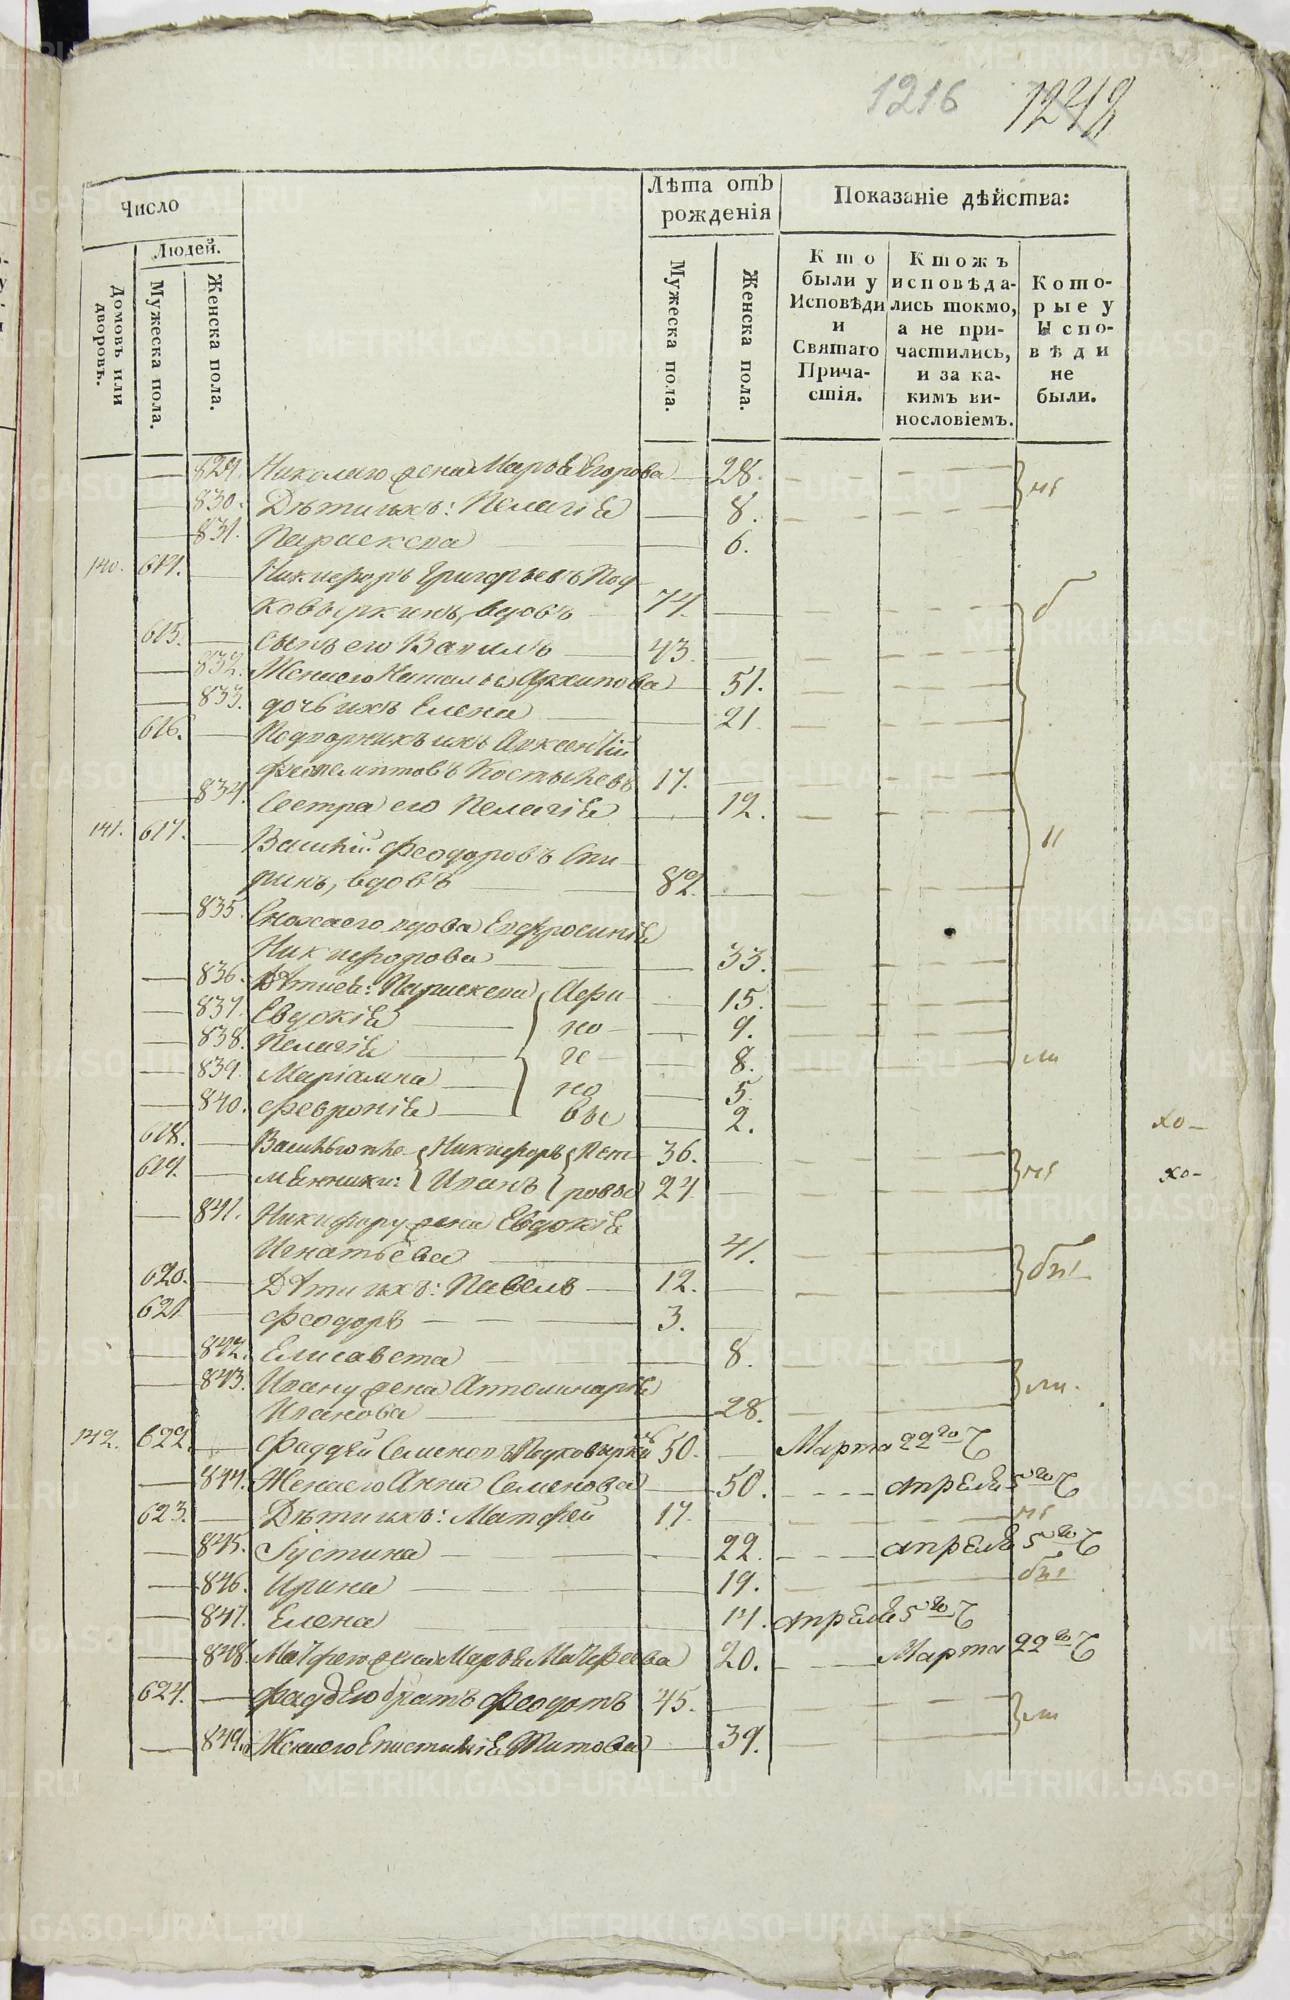 1216 1242
Число
Лѣта отъ рожденія
Показаніе дѣйства:
Людей.
Домовъ или дворовъ.
Мужеска пола.
Женска пола.
Мужеска пола.
Женска пола.
Кто были у Исповѣди и Святаго Причастія.
Ктожъ исповѣдались токмо, а не причастились, и за какимъ винословіемъ.
Которые у Исповѣди не были.
829. Николаю жена Марѳа Егорова 28.
830. Дѣти ихъ: Пелагія 8.
831. Параскева 6.
140. 614. Никифоръ Григорьевъ Под
ковыркинъ, вдовъ 74.
615. Сынъ его Василъ 43
832. Жена его Наталья Архипова 51.
833. дочь ихъ Елена 21
616. Подворникъ ихъ Авксентій
Костылевъ 17.
834. Сестра его Пелагія 12.
141. 617. Василій Феодоровъ Спи
ринъ, вдовъ 82
835. Сноха его вдова Евфросинія
Никифорова 33.
836. Дѣти ея: Параскева 15.
837. Евдокія 9.
838. Пелагія 8.
839. Маріамна 5.
840. Февронія 2.
618. Васильго пле- Никифоръ Пет- 36.
619. мянники: Иванъ ровы 24
841. Никифору жена Евдокія
Игнатьева 41.
620. Дѣти ихъ: Павелъ 12.
621 Феодоръ 3.
842. Елисавета 8.
843. Ивану жена Аполинарія
Иванова 28.
142. 622. Фаддей Семеновъ Подковыркинъ 50. Марта 22го
844. Жена его Анна Семенова 50. апрѣля 5го
623. Дѣти ихъ: Матфей 17.
845. Іустина 22. апрѣля 5го
846. Ирина 19.
847. Елена 14. апрѣля 5го
848 Матфею жена Марья Матфеева 20. Марта 22го
624. Фаддѣю братъ Феодотъ 45.
849. Жена его Епистимія Титова 39.
хо-
хо-